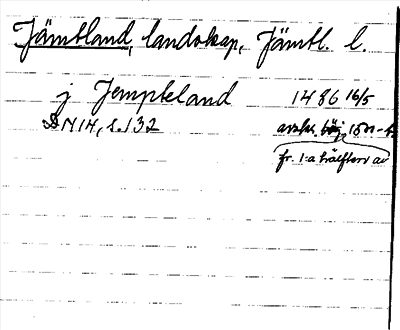 Jämtland, landskap, Jämtl. l.
j Jempteland 1486 16/5
DN 14, s. 132 avskr. börj 1500-t.
fr. 1:a hälften av